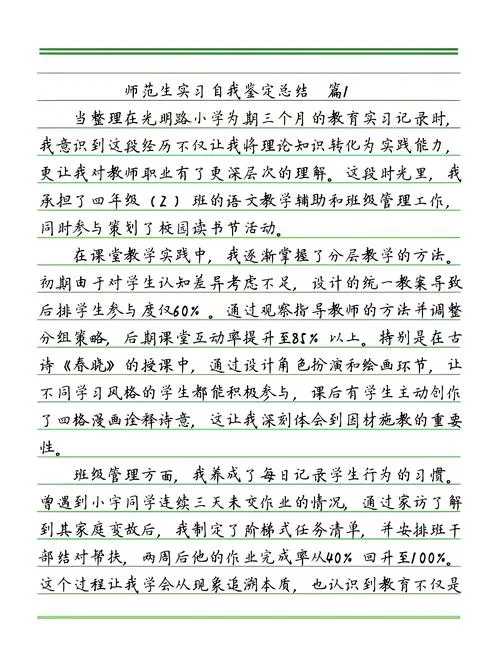 师范生实习自我鉴定总结 篇1
当整理在光明路小学为期三个月的教育实习记录时,
我意识到这段经历不仅让我将理论知识转化为实践能力,
更让我对教师职业有了更深层次的理解。这段时光里,我
承担了四年级(2)班的语文教学辅助和班级管理工作,
同时参与策划了校园读书节活动。
在课堂教学实践中,我逐渐掌握了分层教学的方法。
初期由于对学生认知差异考虑不足,设计的统一教案导致
后排学生参与度仅60% 。通过观察指导教师的方法并调整
分组策略,后期课堂互动率提升至85% 以上。特别是在古
诗《春晓》的授课中,通过设计角色扮演和绘画环节,让
不同学习风格的学生都能积极参与,课后有学生主动创作
了四格漫画诠释诗意,这让我深刻体会到因材施教的重要
性。
班级管理方面,我养成了每日记录学生行为的习惯。
曾遇到小宇同学连续三天未交作业的情况,通过家访了解
到其家庭变故后,我制定了阶梯式任务清单,并安排班干
部结对帮扶,两周后他的作业完成率从40% 回升至100%。
这个过程让我学会从现象追溯本质,也认识到教育不仅是